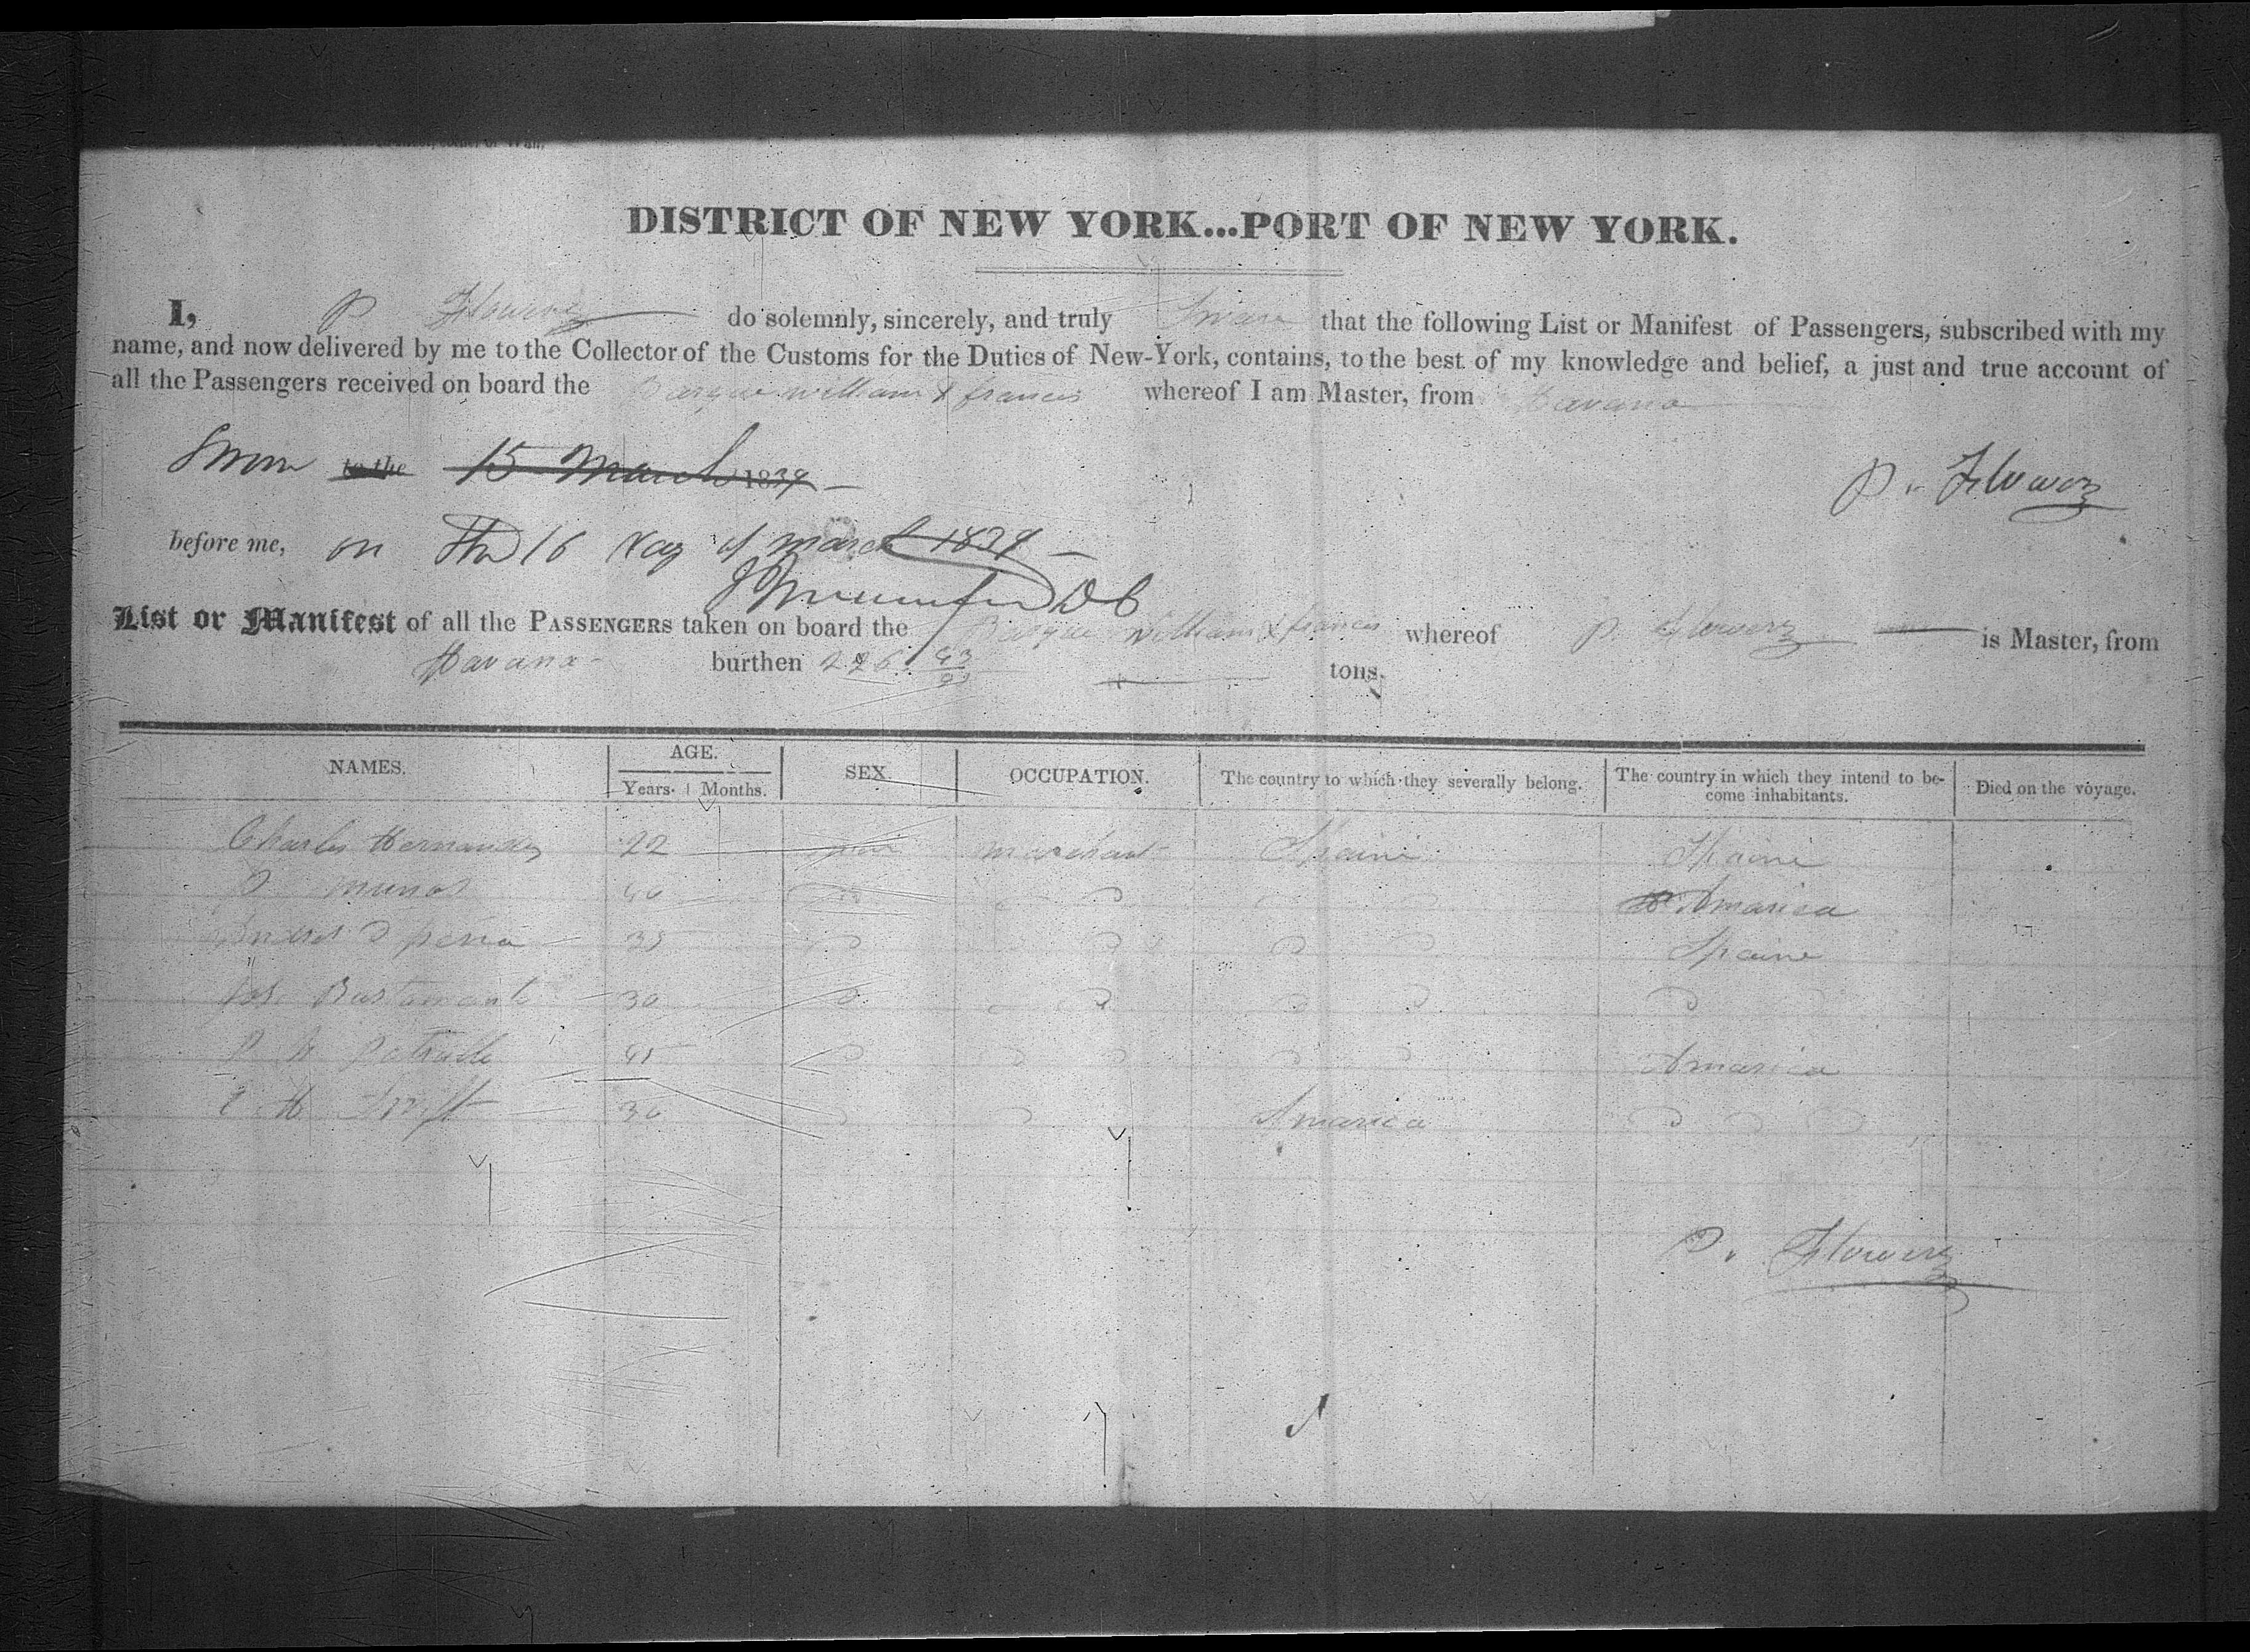 DISTRICT OF NEW YORK...PORT OF NEW YORK.
I, P Flowerz do solemnly, sincerely, and truly Swear that the following List or Manifest of Passengers, subscribed with my
name, and now delivered by me to the Collector of the Customs for the Duties of New-York, contains, to the best of my knowledge and belief, a just and true account of
all the Passengers received on board the Barque william & francis whereof I am Master, from Havana
Sworn to the 15 March 1839
P. Flowerz
before me, on The 16 Day of march 1839
DC
List or Manifest of all the PASSENGERS taken on board the Barque william & francis whereof P. Flowerz is Master, from
Havana burthen tons.
NAMES. AGE. Years. Months. SEX. OCCUPATION. The country to which they severally belong. The country in which they intend to become inhabitants. Died on the voyage.
Charles Hernandez 22 marchant Spaine Spaine
P munos 40 Amarica
D pena 35 Spaine
Jose Bustamante 30
P 45 Amarica
H Swift 30 Amarica
P. Flowerz